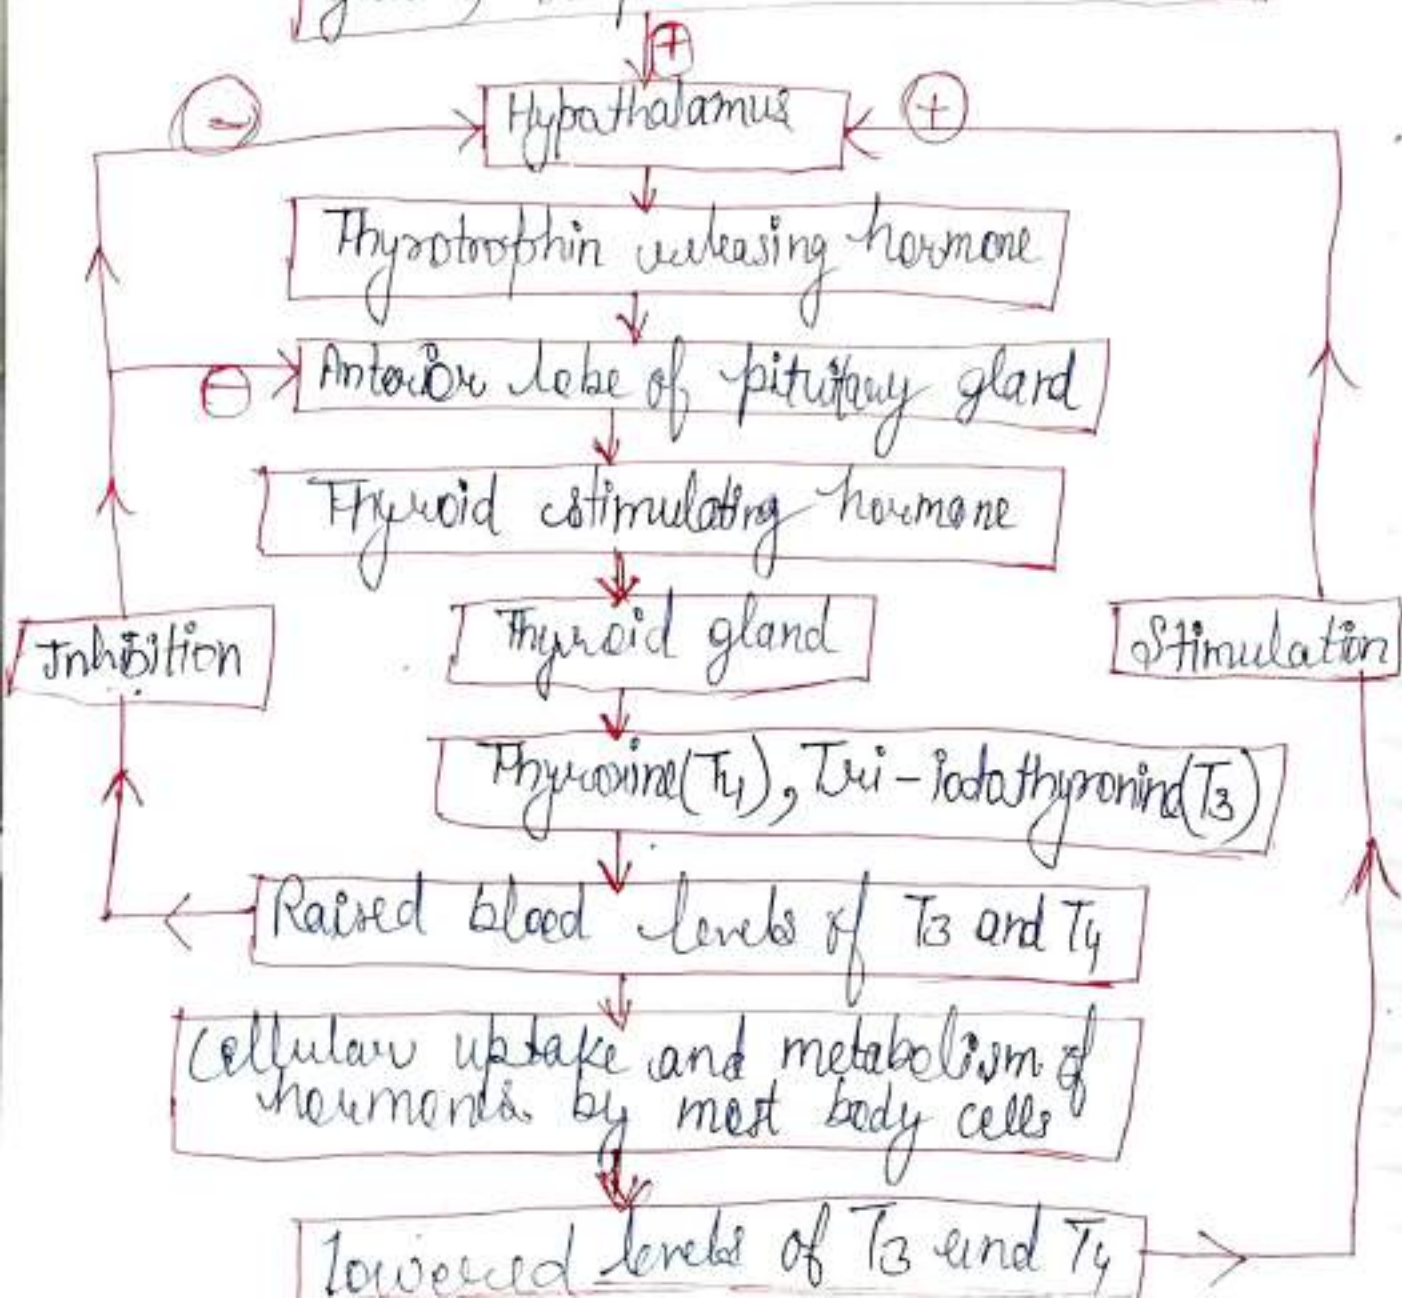 +
-
Hypothalamus
+
Thyrotrophin releasing hormone
-
Anterior lobe of pituitary gland
Thyroid stimulating hormone
Inhibition
Thyroid gland
Stimulation
Thyroxine(T4), Tri-iodothyronine(T3)
Raised blood levels of T3 and T4
Cellular uptake and metabolism of
hormones by most body cells
Lowered levels of T3 and T4